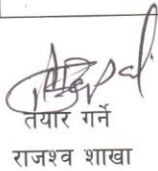 तयार गर्ने
राजश्व शाखा